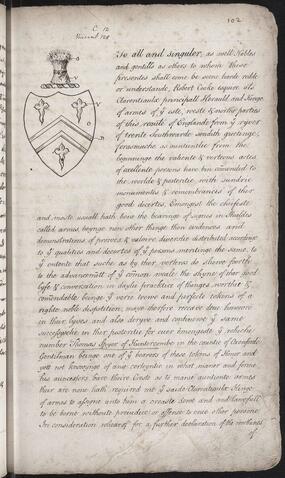 102
C. 12
Vincent 128
To all and singuler, as well Nobles
and gentills as others to whom these
presentes shall come be seene, harde redde
or understande, Robert Cooke esquier als
Clarentiaulx principall Herauld and Kinge
of armes of ye este, weste & southe parties
of this realme of Englande from ye ryver
of trente Southwarde sendith greetinge,
forasmuche as aunciently from the
beginninge the valiente & vertuous actes
of excellente persons have ben comended to
the worlde & posteritie with sundrie
monumentes & remembrances of their
good desertes. Emongest the chiefeste
and moste usuall hath bene the bearinge of signes in Shieldes
called armes, beynge none other thinge then evidences and
demonstrations of prowes & valoure diversly distributed accordinge
to ye qualities and desertes of ye persons meritinge the same, to
ye entente that suche as by their vertues do shewe forth
to the advancement of ye comon weale the shyne of their good
lyfe & conversation in daylie practise of thinges worthie &
comendable beinge ye verie trewe and perfecte tokens of a
righte noble disposition, may therfore receave due honoure
in their lyves and also deryve and contynewe ye same
successyvelie in their posteritie for ever emongeste ye whiche
number Thomas Spyer of Huntercombe in the countie of Oxenforde
Gentilman beinge one of ye bearers of these tokens of Honor and
yett not knowynge of any
his auncestors have borne Creste as to manie auntiente armes
ther are none hath required me ye saide Clarentiaulx Kinge
of armes to assigne unto him a creaste Sone and and lawfull
to be borne withoute prejudice or offence to ene other persone
In consideration whereof & for a further declaration of the
of